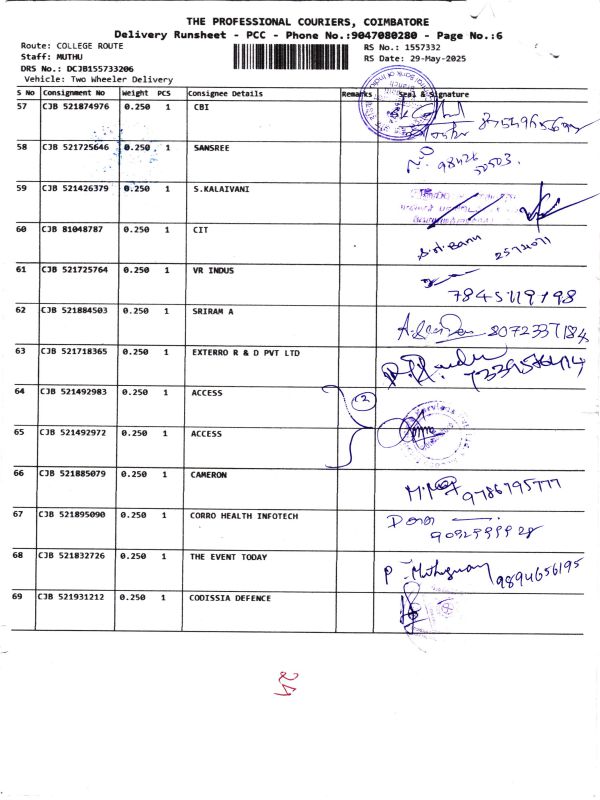 THE PROFESSIONAL COURIERS, COIMBATORE
Delivery Runsheet - PCC - Phone No.:9047080280 - Page No.:6
Route: COLLEGE ROUTE RS No.: 1557332
Staff: MUTHU RS Date: 29-May-2025
DRS No.: DCJB155733206
Vehicle: Two Wheeler Delivery
S No Consignment No Weight PCS Consignee Details Remarks Seal & Signature
57 CJB 521874976 0.250 1 CBI
58 CJB 521725646 0.250 1 SANSREE
98426 50503.
59 CJB 521426379 0.250 1 S.KALAIVANI
60 CJB 81048787 0.250 1 CIT
Banu
61 CJB 521725764 0.250 1 VR INDUS
7845119798
62 CJB 521884503 0.250 1 SRIRAM A
8072337184
63 CJB 521718365 0.250 1 EXTERRO R & D PVT LTD
64 CJB 521492983 0.250 1 ACCESS
65 CJB 521492972 0.250 1 ACCESS
66 CJB 521885079 0.250 1 CAMERON
9786795777
67 CJB 521895090 0.250 1 CORRO HEALTH INFOTECH
9092999928
68 CJB 521832726 0.250 1 THE EVENT TODAY
9894656195
69 CJB 521931212 0.250 1 CODISSIA DEFENCE